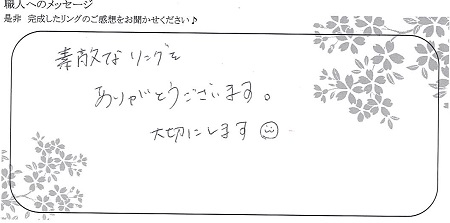 職人へのメッセージ
是非 完成したリングのご感想をお聞かせください♪
素敵なリングを
ありがとうございます。
大切にします